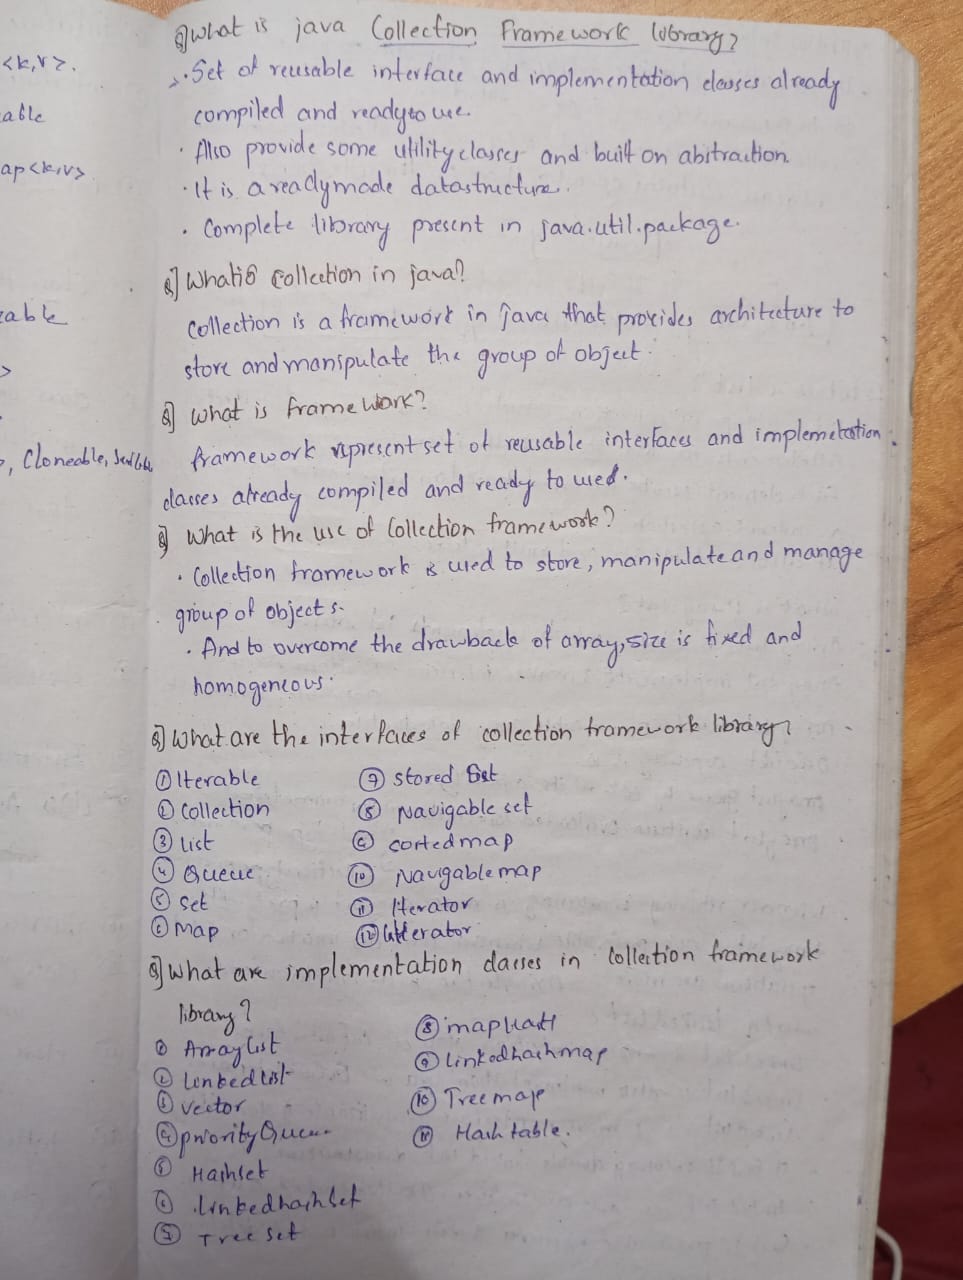 <k,v>.
able
ap<k,v>
able
>
>, Cloneable,
Q] what is java Collection Framework library?
→ . Set of reusable interface and implementation classes already
compiled and ready to use.
. Also provide some utility classes and built on abstraction.
. It is a readymade datastructure.
. Complete library present in java.util.package.
Q] What is Collection in java?
Collection is a framework in java that provides architecture to
store and manipulate the group of object.
Q] What is framework?
framework represent set of reusable interfaces and implemetation
classes already compiled and ready to used.
Q] What is the use of Collection framework?
. Collection framework is used to store, manipulate and manage
group of objects.
. And to overcome the drawback of array, size is fixed and
homogeneous.
Q] What are the interfaces of collection framework library?
① Iterable
② Collection
③ List
④ Queue
⑤ Set
⑥ Map
⑦ Stored Set
⑧ Navigable set
⑨ cortedmap
⑩ Navigablemap
⑪ Iterator
⑫
Q] What are implementation classes in Collection framework
library?
① ArrayList
② Linkedlist
③ Vector
④ priorityQueue
⑤ Hashset
⑥ LinkedhashSet
⑦ Tree set
⑧
⑨ Linkedhashmap
⑩ Treemap
⑪ Hash table.